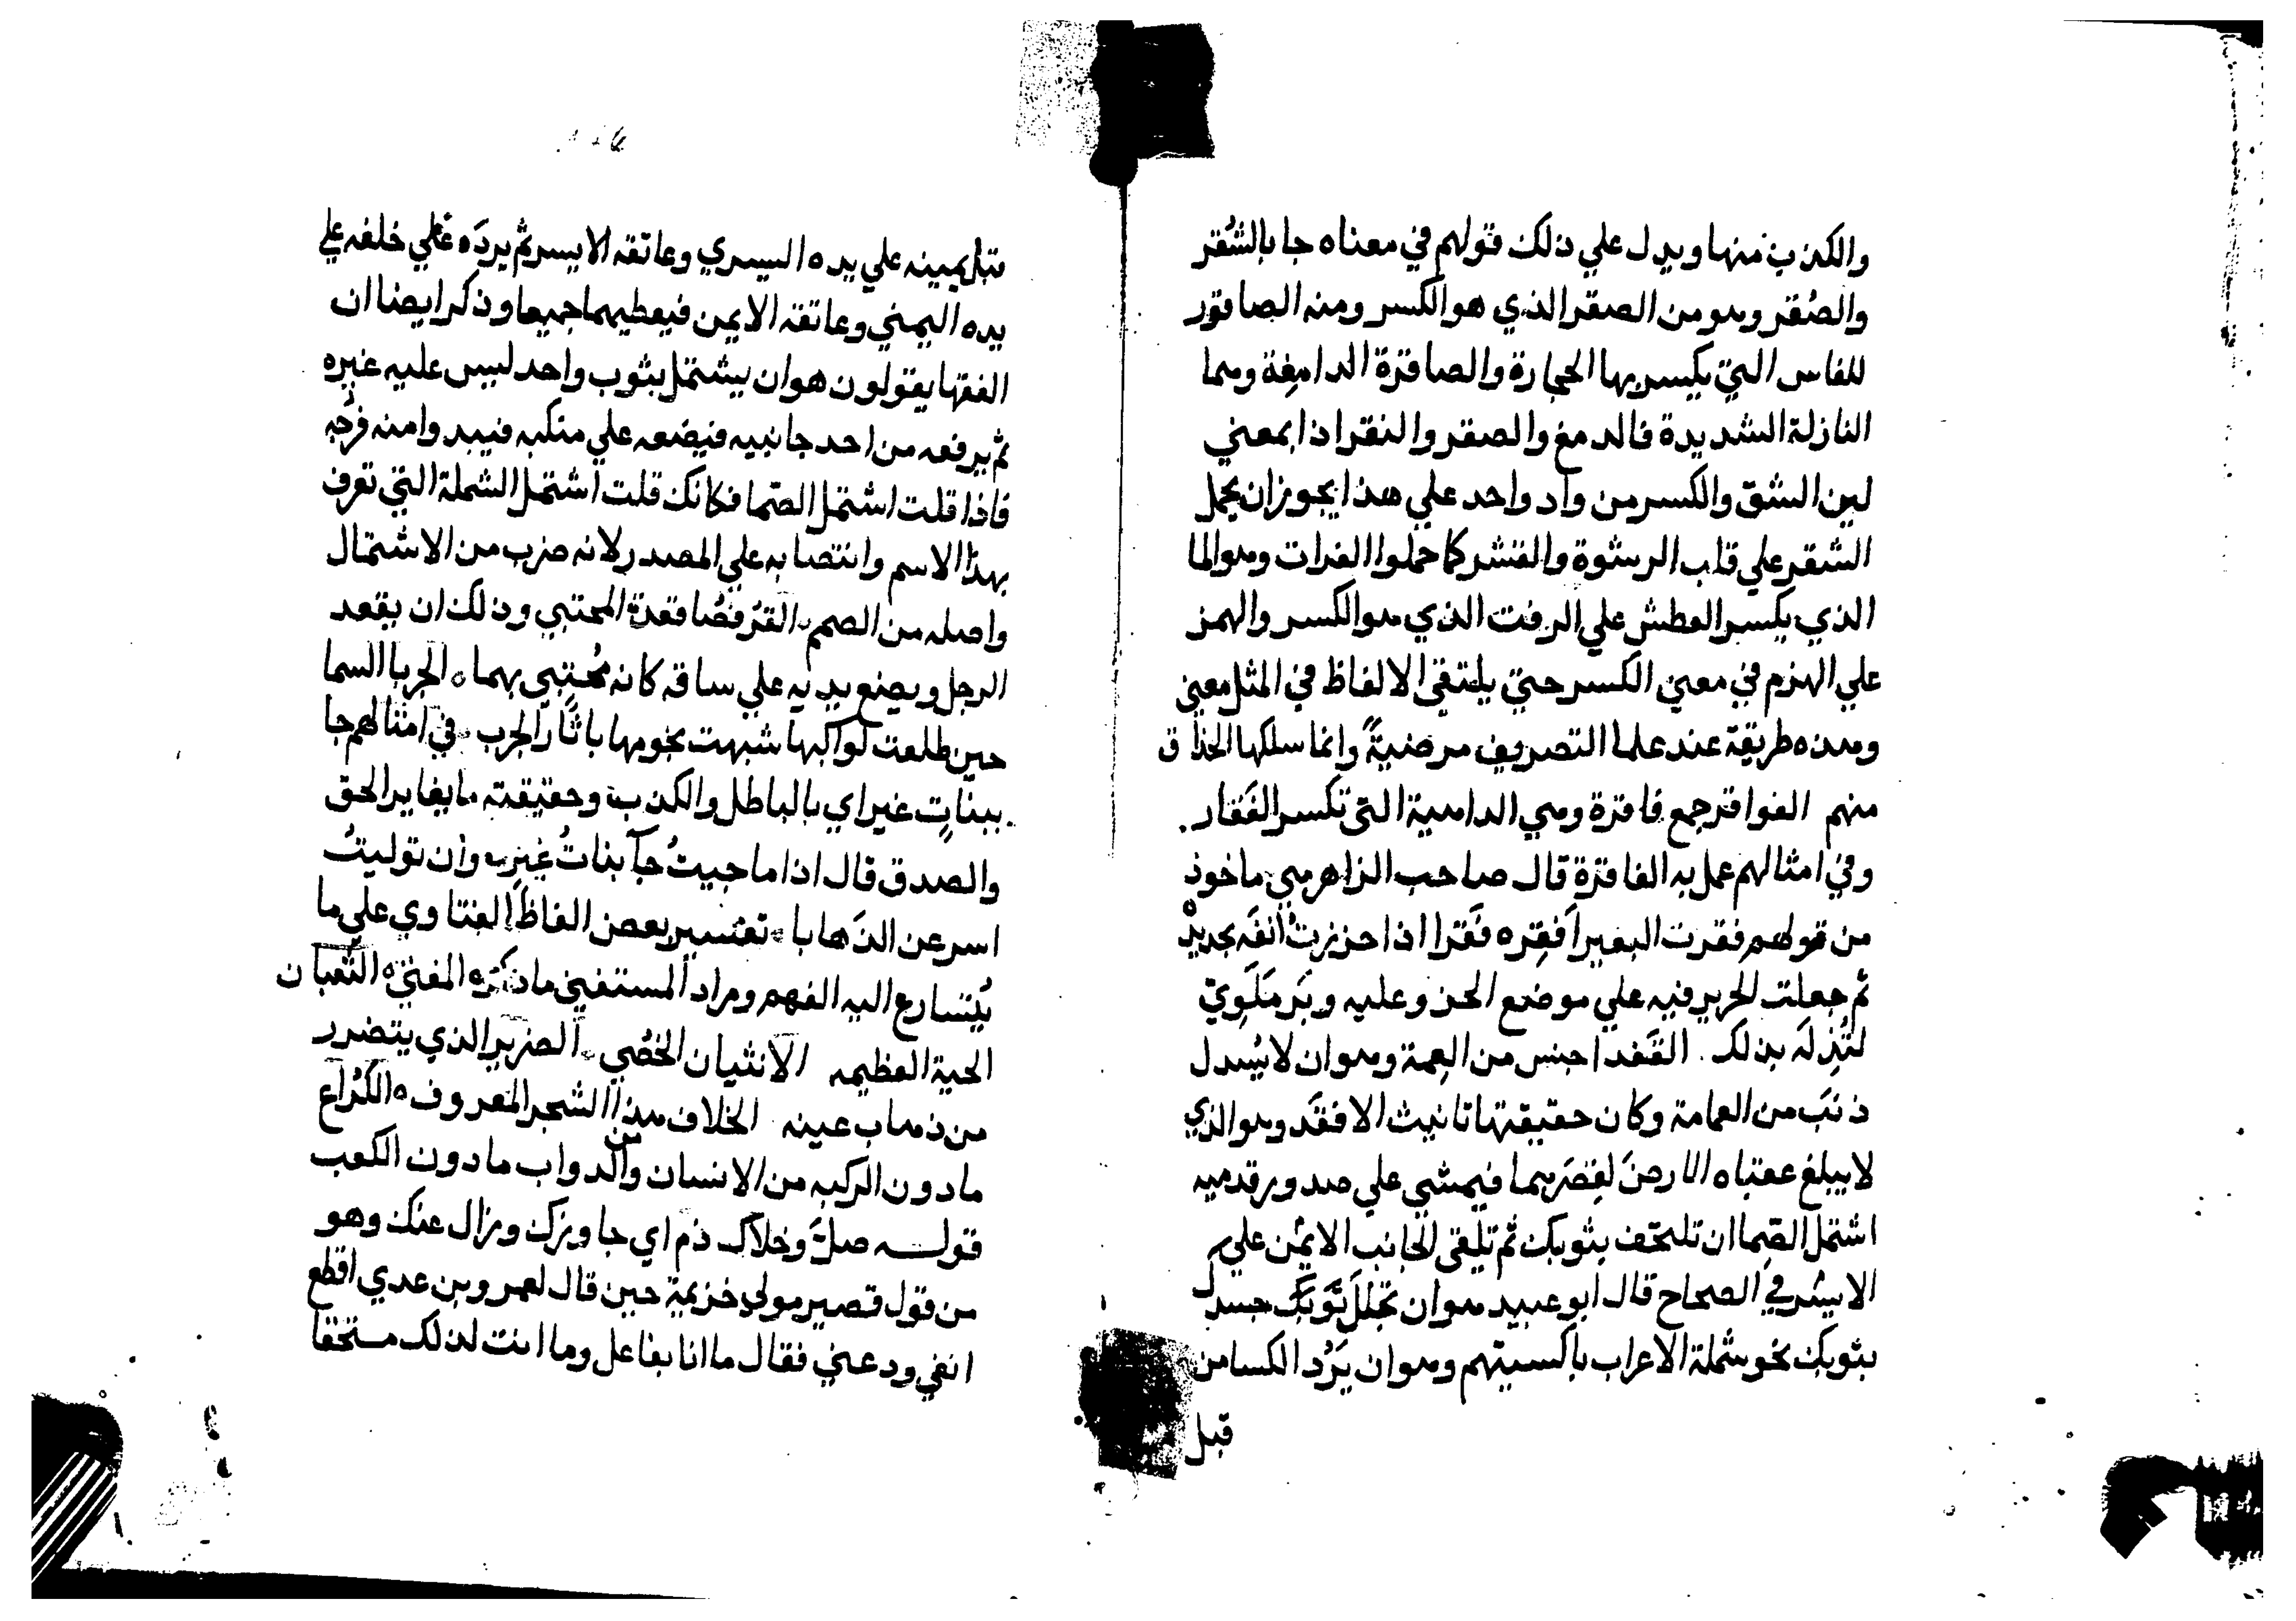 والكذب منها ويدل علي ذلك قولهم في معناه جا بالشُقر
والصُقر وهو من الصقر الذي هو الكسر ومنه الصاقور
للفاس التي يكسر بها الحجارة والصاقرة الدامغة وهما
النازلة الشديدة فالدمغ والصقر والنقر اذا بمعني
لين الشق والكسر من واد واحد علي هذا يجوز ان يحمل
الشقر علي قلب الرشوة والقشر كما حملوا الفرات وهو الما
الذي يكسر العطش علي الرفت الذي هو الكسر والهمز
علي الهزم في معني الكسر حتي يلتقي الالفاظ في المثل معني
وهذه طريقة عند علما التصريف مرضيةٌ وانما سلكها الحذاق
منهم الفواقر جمع فاقرة وهي الداهية التي تكسر الفَقار
وفي امثالهم عمل به الفاقرة قال صاحب الزاهر هي ماخوذ
من قولهم فقرت البعير اَفقِره فَقرا اذا حززتُ انفَه بحديدٍ
ثم جعلت الجرير فيه علي موضع الحز وعليه وبَر مَلَويّ
لتُذِلَه بذلك . القَفدا جنس من العِمة وهو ان لا يُسدل
ذنَبَ من العمامة وكان حقيقتها تانيث الا فقَد وهو الذي
لا يبلغ عقباه الارضَ لقِصَرهما فيمشي علي صدور قدميه
اشتمل الصّما ان تلتحف بثوبك ثم تلقي الجانب الايمن علي
الايسُر في الصحاح قال ابو عبيد هو ان تجلل ثوبك جسدك
بثوبك نحو شملة الاعراب باكسيتهم وهو ان يَرُد الكسا من
قبل
قبل يمينه علي يده اليسري وعاتقه الايسر ثم يردّه علي خلفه علي
يده اليمني وعاتقه الايمن فيغطيهما جميعا وذكر ايضا ان
الفقها يقولون هو ان يشتمل بثوب واحد ليس عليه غيره
ثم يرفعه من احد جانبيه فيضعه علي منكبه فيبدوا منه فرجه
فاذا قلت اشتمل الصّما فكانك قلت اشتمل الشملة التي تعرف
بهذا الاسم وانتصابه علي المصدر لانه ضرب من الاشتمال
واصله من الصمم القُرفصُا قعدة المحتبي وذلك ان يقعد
الرجل ويضع يديه علي ساقه كانه مُحتبي بهما ه الجربا السما
حين طلعت كواكبها شبهت نجومها باثار الجرب . في امثالهم جا
ببناتٍ غير اي بالباطل والكذب وحقيقته ما يغاير الحق
والصدق قال اذا ما جيتُ جآ بناتُ غيرٍ وان توليتُ
اسرعن الذَهابا تفسير بعض الفاظ الفتاوي علي ما
يُتسارع اليه الفهم ومراد المستفتي ما ذكره المفتي ه الثعبان
الحية العظيمه الانثيان الخُصي الضرير الذي يتضرر
من ذهاب عينه الخلاف هذا الشجر المعروف ه الكُراع
ما دون الركبه من الانسان ومن الدواب ما دون الكعب
قولـــه ضلَّ وخلاك ذم اي جاوزك وزال عنك وهو
من قول قصير مولي خزيمة حين قال لعمرو بن عدي اقطع
انفي ودعني فقال ما انا بفاعل وما انت لذلك مستحقا